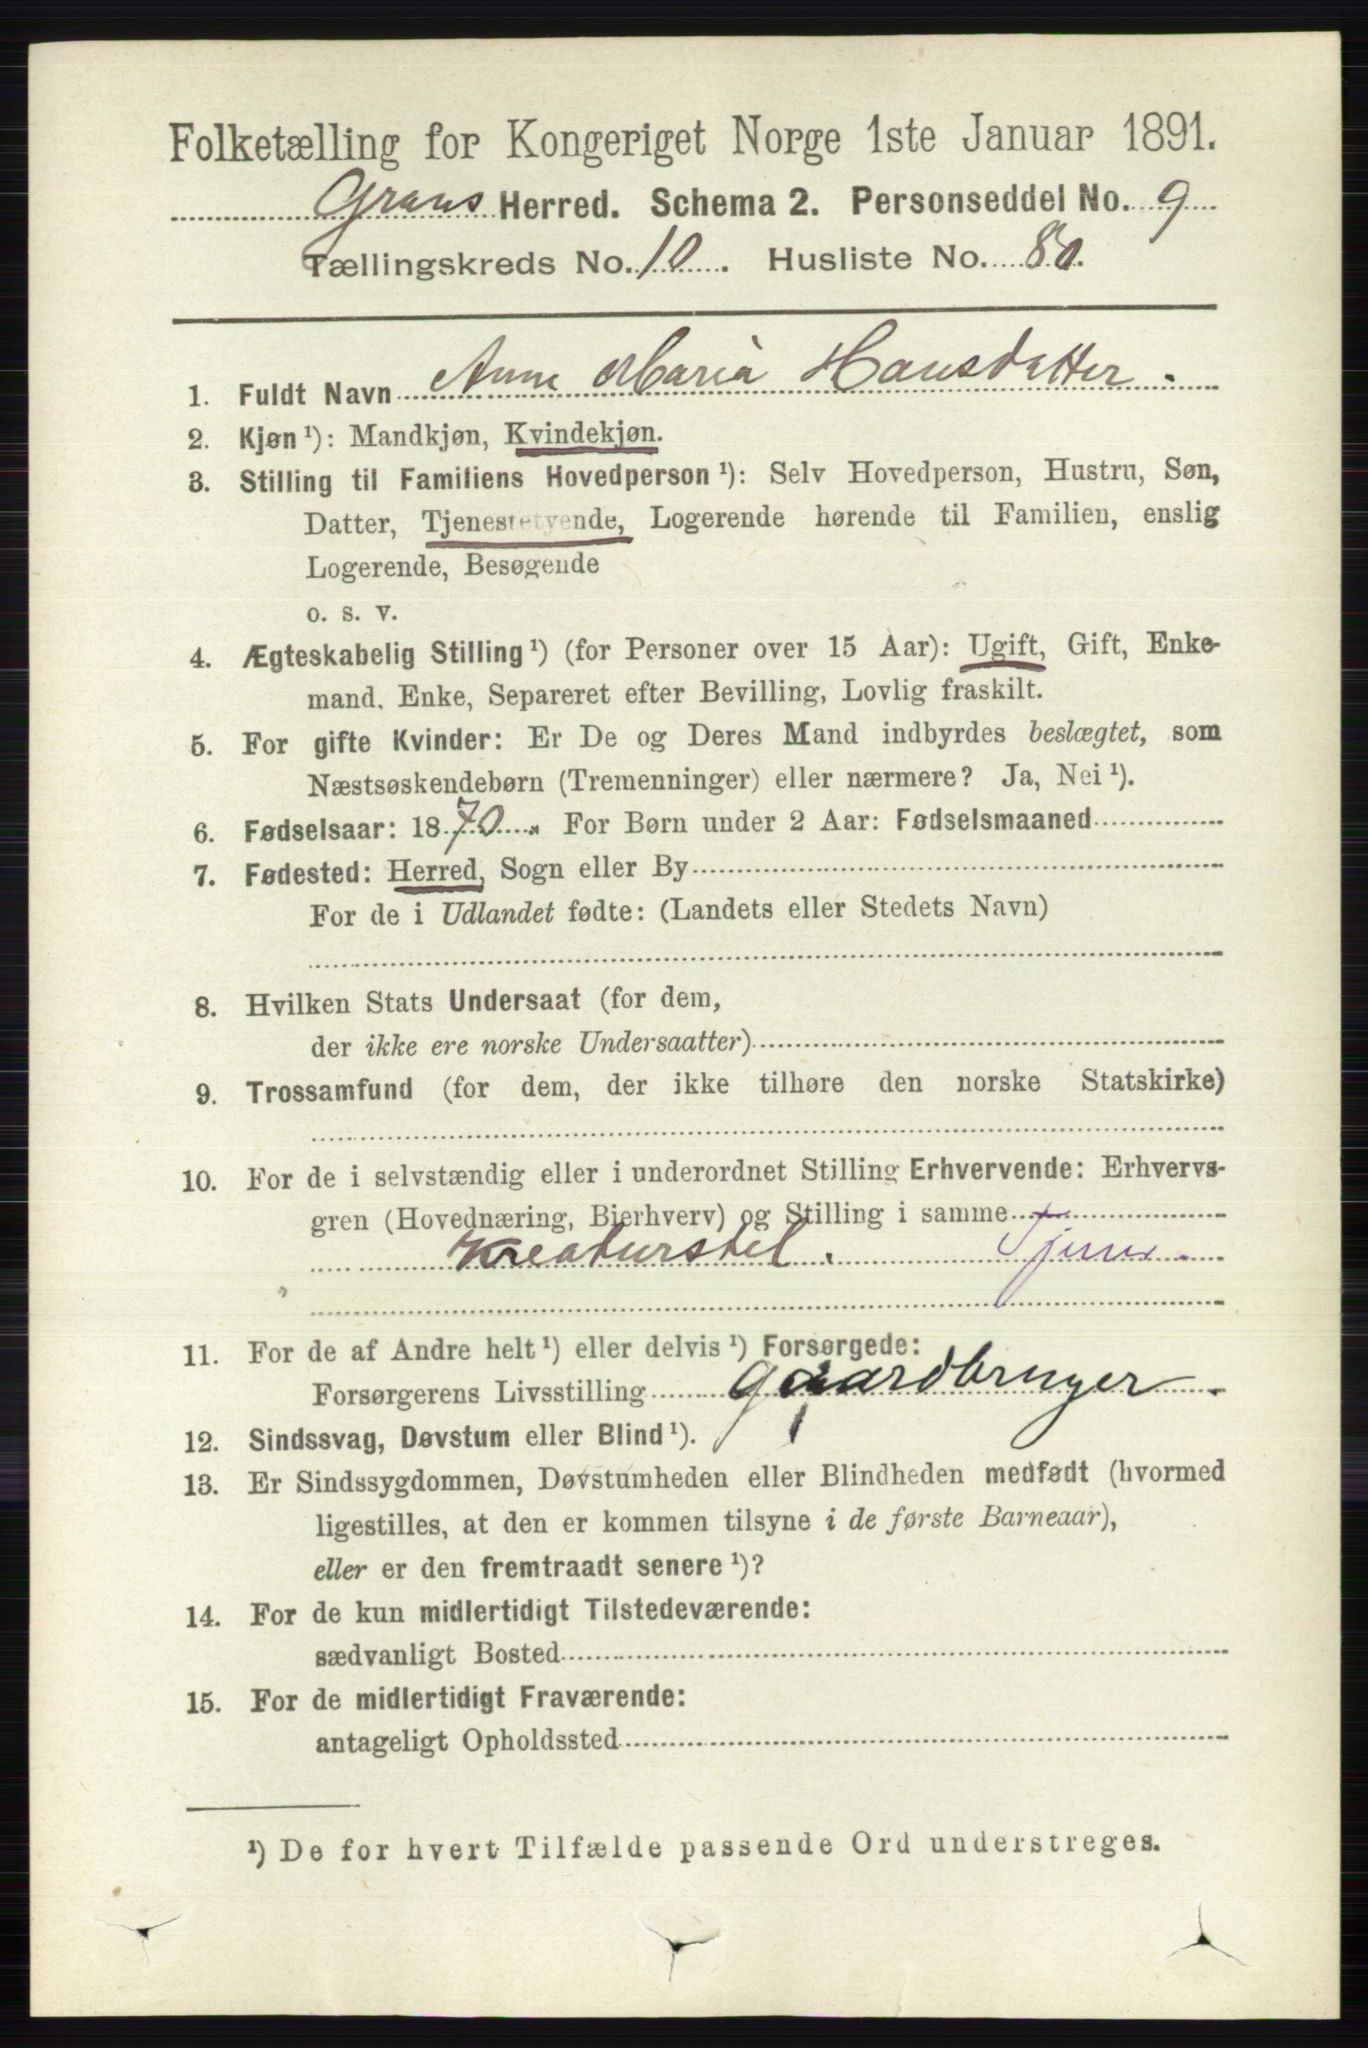 Folketælling for Kongeriget Norge 1ste Januar 1891.
Grans Herred. Schema 2. Personseddel No. 9
Tællingskreds No. 10. Husliste No. 80.
1. Fuldt Navn Anne Maria Hansdatter.
2. Kjøn ¹): Mandkjøn, Kvindekjøn.
3. Stilling til Familiens Hovedperson ¹): Selv Hovedperson, Hustru, Søn,
Datter, Tjenestetyende, Logerende hørende til Familien, enslig
Logerende, Besøgende
o. s. v.
4. Ægteskabelig Stilling ¹) (for Personer over 15 Aar): Ugift, Gift, Enke-
mand, Enke, Separeret efter Bevilling, Lovlig fraskilt.
5. For gifte Kvinder: Er De og Deres Mand indbyrdes beslægtet, som
Næstsøskendebørn (Tremenninger) eller nærmere? Ja, Nei ¹).
6. Fødselsaar: 1870. For Børn under 2 Aar: Fødselsmaaned
7. Fødested: Herred, Sogn eller By
For de i Udlandet fødte: (Landets eller Stedets Navn)
8. Hvilken Stats Undersaat (for dem,
der ikke ere norske Undersaatter)
9. Trossamfund (for dem, der ikke tilhøre den norske Statskirke)
10. For de i selvstændig eller i underordnet Stilling Erhvervende: Erhvervs-
gren (Hovednæring, Bierhverv) og Stilling i samme
Kreaturstel.
11. For de af Andre helt ¹) eller delvis ¹) Forsørgede:
Forsørgerens Livsstilling gaardbruger.
12. Sindssvag, Døvstum eller Blind ¹).
13. Er Sindssygdommen, Døvstumheden eller Blindheden medfødt (hvormed
ligestilles, at den er kommen tilsyne i de første Barneaar),
eller er den fremtraadt senere ¹)?
14. For de kun midlertidigt Tilstedeværende:
sædvanligt Bosted
15. For de midlertidigt Fraværende:
antageligt Opholdssted
¹) De for hvert Tilfælde passende Ord understreges.